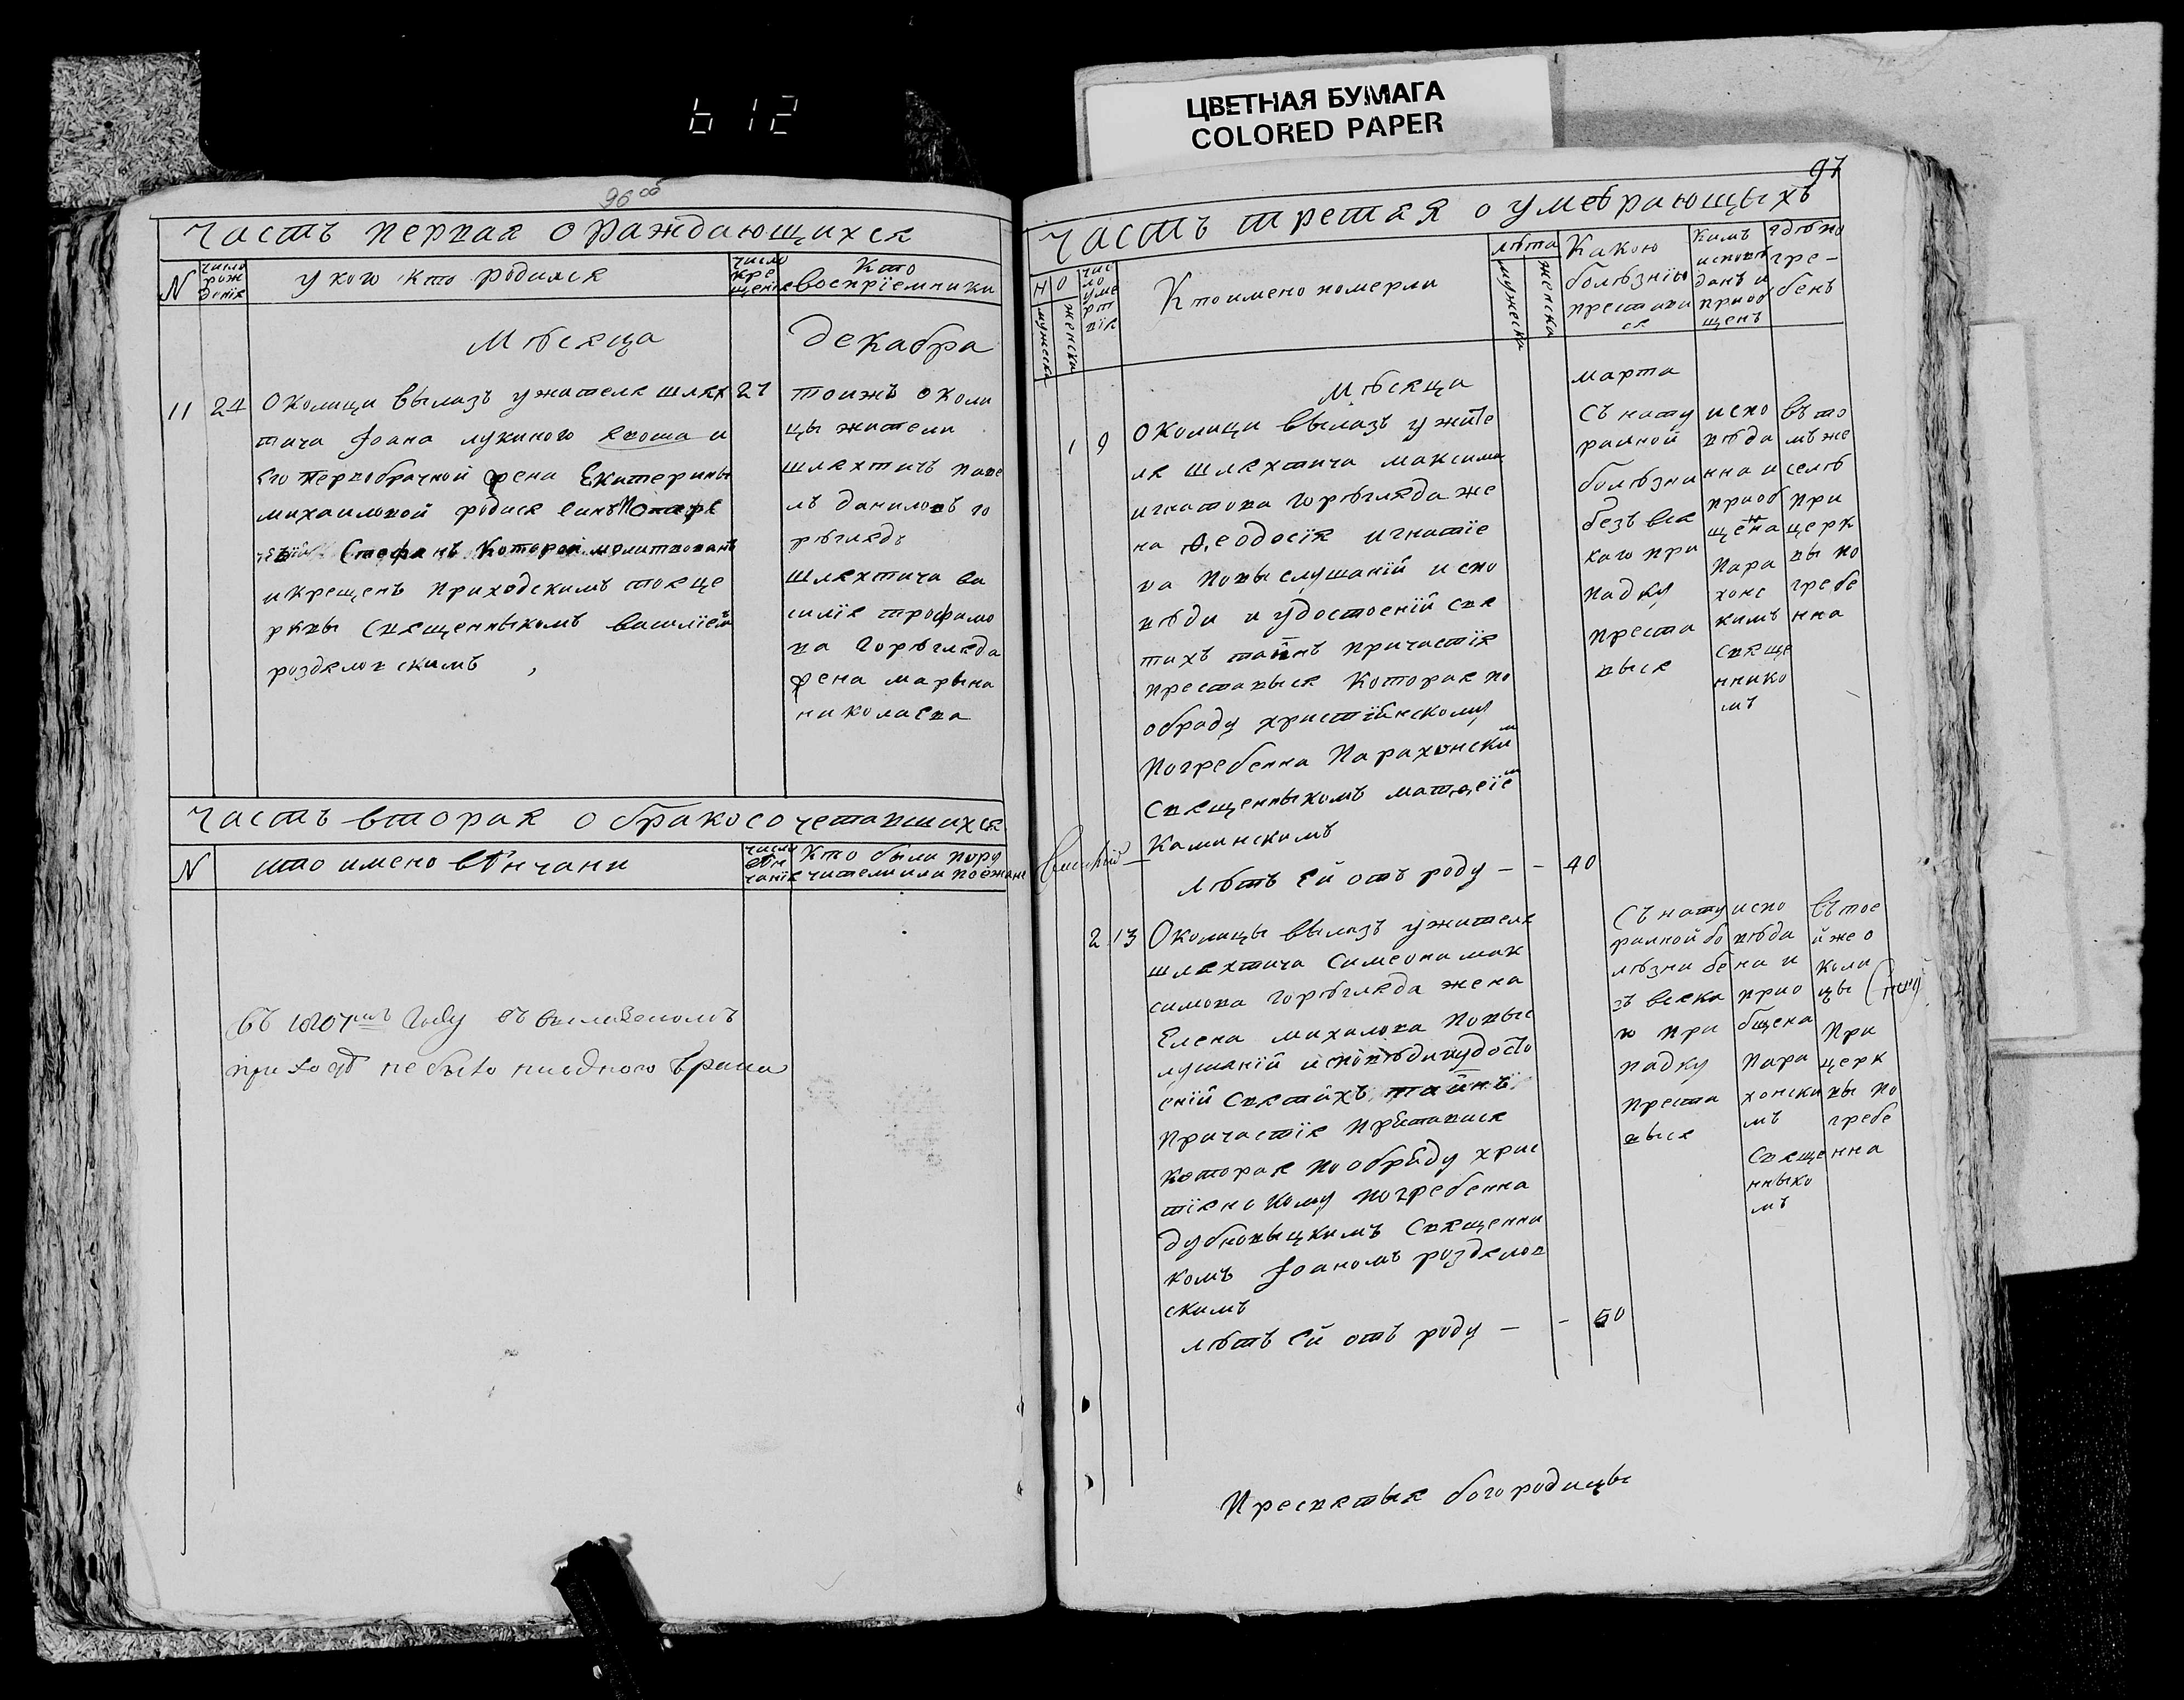 612
ЦВЕТНАЯ БУМАГА
COLORED PAPER
96 об
Часть первая о раждающихся
N
число рож дения
у кого кто родился
число кре щения
Кто восприемники
Мѣсяца
декабра
11 24
Околици Вылазъ ужителя шлях
тича Іоана лукиного
и
его первобрачной жена Екатерины
михаиловой родися синъ
Стефанъ Которой молитвованъ
и крещенъ приходскимъ тояце
рквы священныкомъ василіемъ
розделовскимъ
27
тоижъ околи
цы жители
шляхтичъ паве
лъ даниловъ го
рѣглядъ
шляхтича ва
силія трофимо
ва Горѣгляда
жена марына
николаева
Часть вторая о бракосочетавшихся
N
што имено вѣнчани
число вѣн чанія
Кто были пору чители или поежане
въ Году въ вылазскомъ
приходѣ не было ниодного брака
97
Часть третая о умебрающыхъ
N О
мужеска
женска
Чис ло уме рт вія
Кто имено померли
лѣта
мужеска
женска
Какою болѣзнію преставися
Кимъ исповѣданъ и приобщенъ
гдѣ погребенъ
Мѣсяца
марта
1 9
Околици Вылазъ ужите
ля шляхтича максима
игнатова Горѣгляда же
на Ѳеодосія игнатіе
ва повыслушаній испо
вѣди и удостоеній свя
тихъ таинъ причастія
преставыся Которая по
обраду христіанскому
погребенна Парахонским
Священныкомъ матѳеіем
Каминскимъ
лѣтъ ей отъ роду — - 40
Съ нату
ралной
болѣзни
безъ вся
каго при
падку
преста
выся
испо
вѣда
нна и
приоб
щена
Пара
хонс
кимъ
Свяще
ннико
мъ
въ то
мъ же
селѣ
при
церк
вы по
гребе
нна
2 13
Околицы Вылазъ ужителя
шляхтича Симеона мак
симова Горѣгляда жена
Елена михалова повыс
лушаній исповѣди и удосто
еній Святихъ таинъ
Причастія Приставися
которая по обраду хрис
тіянскому погребенна
дубновыцкимъ Священни
комъ Іоаномъ розделов
скимъ
лѣтъ ей отъ роду — - 50
Съ нату
ралной бо
лѣзни бе
зъ всяка
го при
падку
преста
выся
испо
вѣда
на и
прио
бщена
Пара
хонски
мъ
Свяще
нныко
мъ
въ тое
йже о
коли
цы
при
церк
вы по
гребе
нна
Пресвятыя богородицы